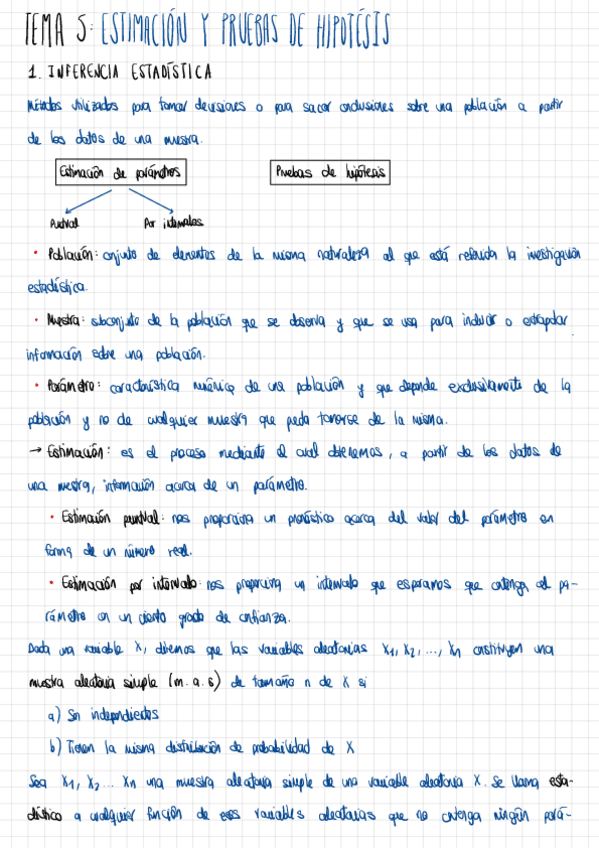 TEMA 5: ESTIMACIÓN Y PRUEBAS DE HIPOTÉSIS
1. INFERENCIA ESTADÍSTICA
Métodos utilizados para tomar decisiones o para sacar conclusiones sobre una población a partir
de los datos de una muestra.
Estimación de parámetros Pruebas de hipótesis
Puntual Por intervalos
• Población: conjunto de elementos de la misma naturaleza al que está referida la investigación
estadística.
• Muestra: subconjunto de la población que se observa y que se usa para inducir o extrapolar
información sobre una población.
• Parámetro: característica numérica de una población y que depende exclusivamente de la
población y no de cualquier muestra que pueda tomarse de la misma.
→ Estimación: es el proceso mediante el cual obtenemos, a partir de los datos de
una muestra, información acerca de un parámetro.
• Estimación puntual: nos proporciona un pronóstico acerca del valor del parámetro en
forma de un número real.
• Estimación por intervalo: nos proporciona un intervalo que esperamos que contenga el pa-
rámetro con un cierto grado de confianza.
Dada una variable X, diremos que las variables aleatorias X1, X2, ..., Xn constituyen una
muestra aleatoria simple (m.a.s) de tamaño n de X si
a) Son independientes
b) Tienen la misma distribución de probabilidad de X
Sea X1, X2... Xn una muestra aleatoria simple de una variable aleatoria X. Se llama esta-
dístico a cualquier función de esas variables aleatorias que no contenga ningún pará-